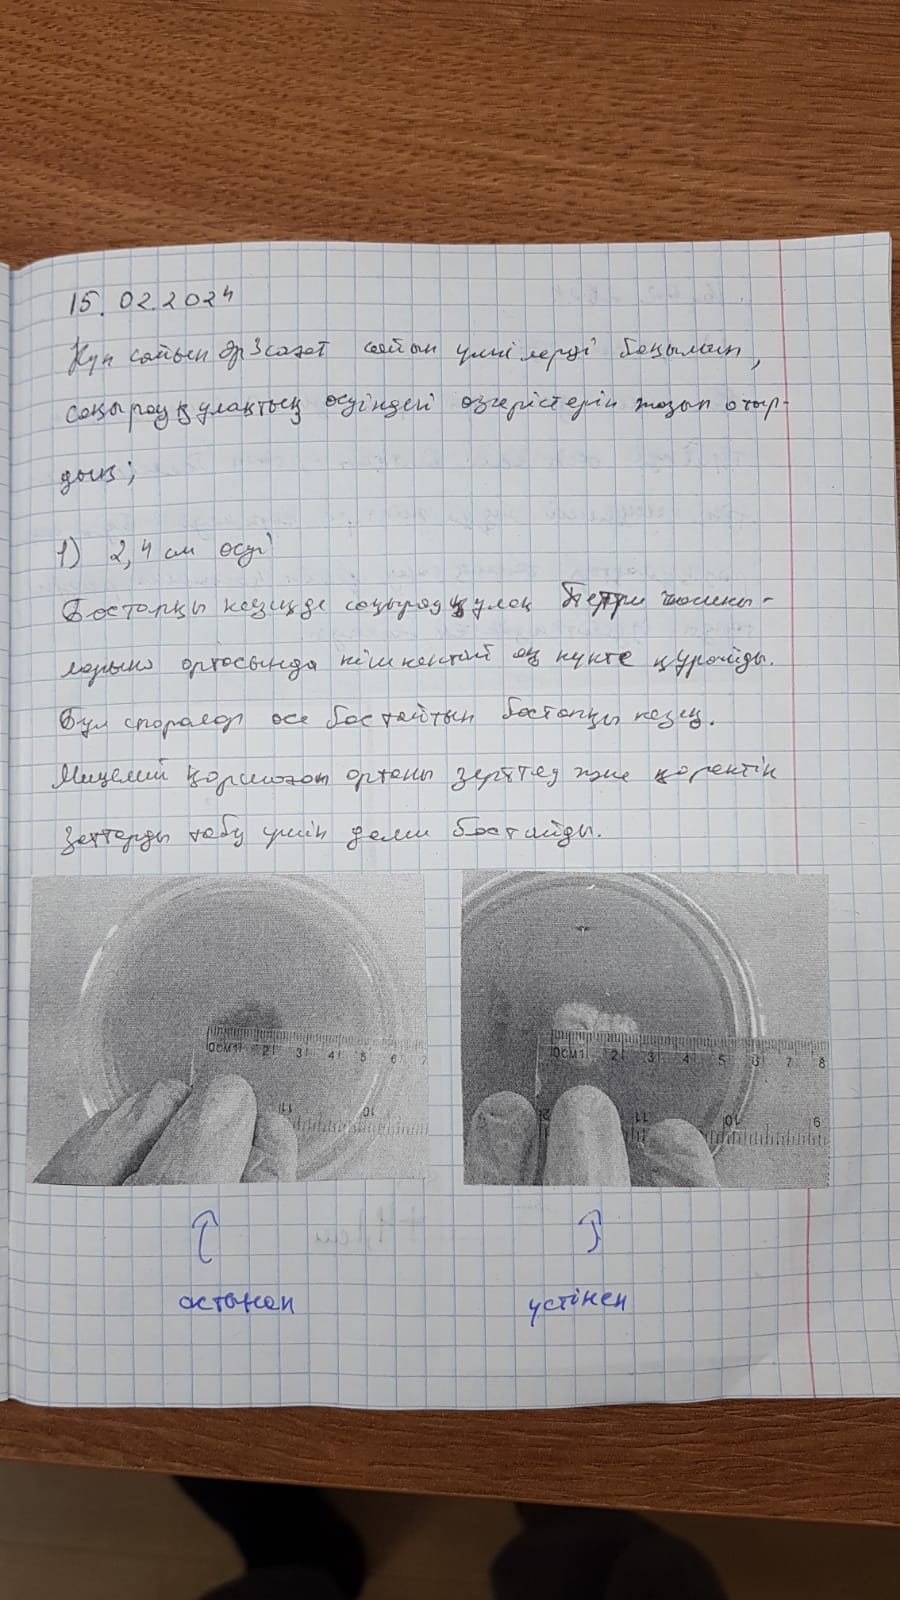 15.02.2024
Күн сайын әр 3 сағат сайын үлгілерді бақылап,
саңырауқұлақтың өсуіндегі өзгерістерін жазып отыр-
дық;
1) 2,4 см өсуі
Бастапқы кезеңде саңырауқұлақ Петри
ортасында кішкентай ақ нүкте құрайды.
Бұл споралар өсе бастайтын бастапқы кезең.
Мицелий қоршаған ортаны зерттеу және қоректік
заттарды табу үшін дами бастайды.
0СМ1 2 3 4 5 6 7
11 10
0СМ1 2 3 4 5 6 7 8
11 10 9
астынан
үстінен